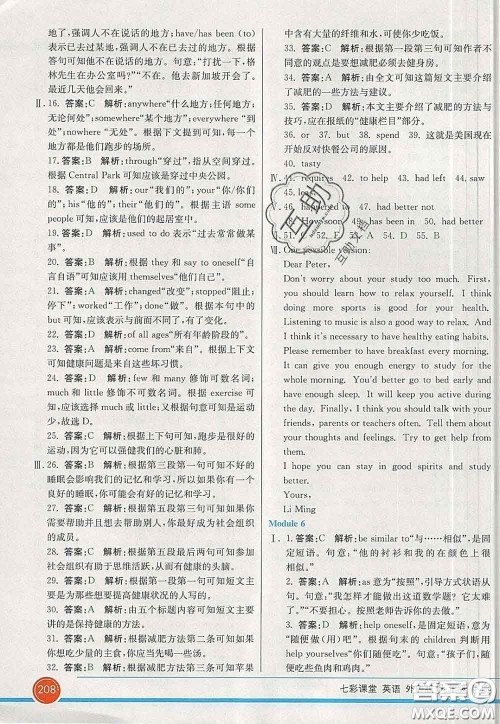 地了，强调人不在说话的地方；have/has been (to)
表示已去过某地，强调人在说话的地方。根据
答句可知他不在说话的地方。句意：“打扰一下，格
林先生在办公室吗？”“不在。他去了新加坡开会了。最
近几天他会回来。”
Ⅱ. 16. 答案：C 解析：anywhere“什么地方；任何地方；
无论何处”；somewhere“某个地方”；everywhere“到
处”；nowhere“无处”。根据下文可知，每一个
地方都是他们跑步的场所。
17. 答案：B 解析：through“穿过”，指从内部穿过。
根据 Central Park 可知应该是穿过中央公园。
18. 答案：D 解析：our“我们的”；your“你/你们
的”；his“他的”；their“他们的”。根据主语 some
people 可知，应该是他们的起居室中。
19. 答案：D 解析：used to do 表示“过去常常做某
事”。
20. 答案：B 解析：根据 they 和 to oneself“自
言自语”可知应该用 themselves“他们自己”。
21. 答案：A 解析：changed“改变”；stopped“阻止；
停下”；worked“工作”；done“做”。根据本句中的 but
可知，应该表示与前面不同了，有了改变。
22. 答案：D 解析：of all ages“所有年龄段的”。
23. 答案：A 解析：come from“来自”。根据上下文
可知健康问题是来自这一大变化。
24. 答案：B 解析：few 和 many 修饰可数名词；
much 和 little 修饰不可数名词。根据 exercise 可知
应选择 much 或 little。又根据句意可知是运动
少，故选 D。
25. 答案：C 解析：根据上下文，可知运动可以使
我们有一个强健的心脏和肺。
Ⅲ. 26. 答案：C 解析：根据第三段第一句可知不好的
睡眠会影响记忆和学习，所以可知好的睡眠可能
会有一个好的记忆和学习。
27. 答案：C 解析：根据第五段第四句可知人们需
要帮助并且去帮助别人，你最好成为社会组织的
成员。
28. 答案：B 解析：根据第五段最后两句可知参加
社会组织有助于思维活跃，从而有助于大脑健康。
29. 答案：B 解析：根据第一句可知短文主要是
根据健康状况的人写的。
30. 答案：D 解析：由五个标题可知短文内容主要
讲的是保持健康的方法。
31. 答案：A 解析：根据减肥方法第二条可知如果
你想减肥，不能吃太多肉。
32. 答案：B 解析：根据减肥方法第三条可知苹果
中含有大量的纤维和水，可使你少吃饭。
33. 答案：C 解析：根据第一段第三句可知作者不
同意的观点是要想减肥必须去健身房。
34. 答案：A 解析：由全文可知这篇短文主要介绍
了减肥的一些方法与建议。
35. 答案：D 解析：本文主要介绍了减肥的方法与
技巧，应在报纸的“健康栏目”部分。
36. or 37. but 38. spend 39. 这就是美国现在
开始反对快餐公司的原因。
40. tasty
Ⅳ. 41. requires 42. to help 43. awful 44. says 45.
lose
46. happened to 47. had better not
48. How soon 49. has been 50. had better
51. G 52. F 53. A 54. D 55. B
Ⅶ. One possible version:
Dear Peter,
Don't worry about your study too much. First,
you should learn to relax yourself. I think
doing more sports is good for your health.
Listening to music is also a good way to relax. And
I think it's necessary to have healthy eating habits.
Please remember to have breakfast every morning.
It can give you enough energy to study for the
whole morning. You'd better go to bed early and
have enough sleep. It will keep you active during
the day. Finally, you should talk often with your
friends, parents or teachers often. Try to get help
from them.
I hope you can stay in good spirits and study
better.
Yours,
Li Ming
Module 6
Ⅰ. 1. 答案：C 解析：be similar to“与……相似”，是固
定短语。句意：“他的衬衫和我的在颜色上很
相似。”
2. 答案：A 解析：as意为“按照”，引导方式状语从
句。句意：“你可以告诉我怎样做出这道数学题？”
“不要担心。按照老师告诉你的去做。”
3. 答案：D 解析：help oneself，是固定短语，意为
“随便做（用）吧”。根据句中的 children 判断用
help yourselves。句意：“孩子们，随便吃些鱼和
208
七彩课堂 英语 外